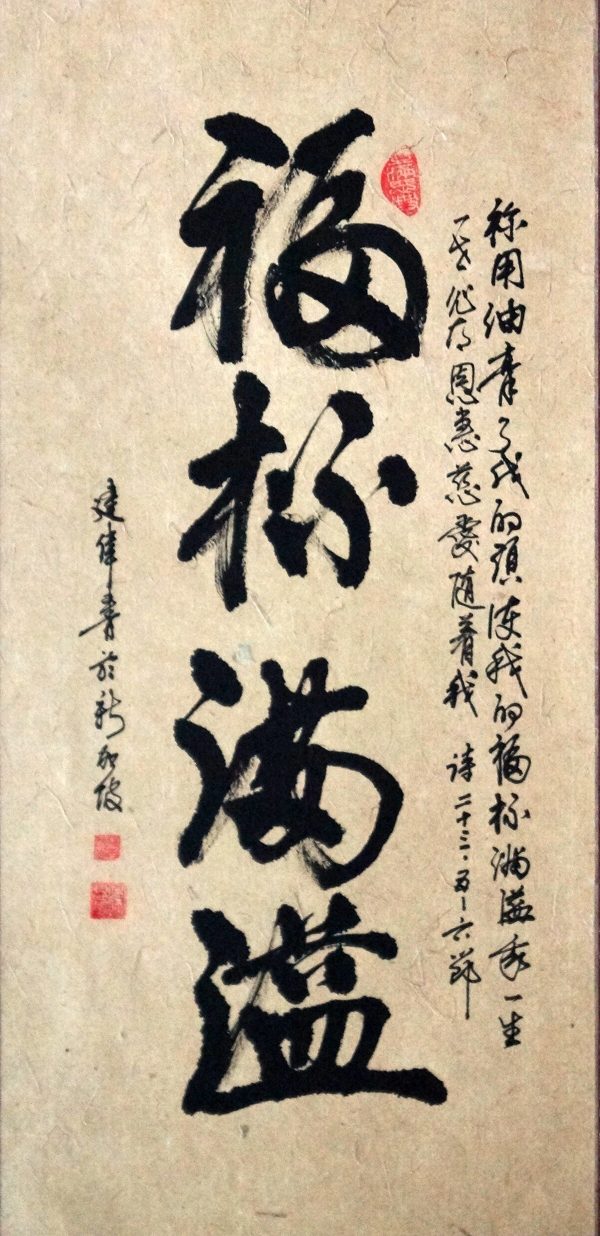 祢用油膏了我的頭使我的福杯满溢我一生
一世必有恩惠慈爱随着我 诗二十三·五-六節
福杯满溢
建偉書於新加坡